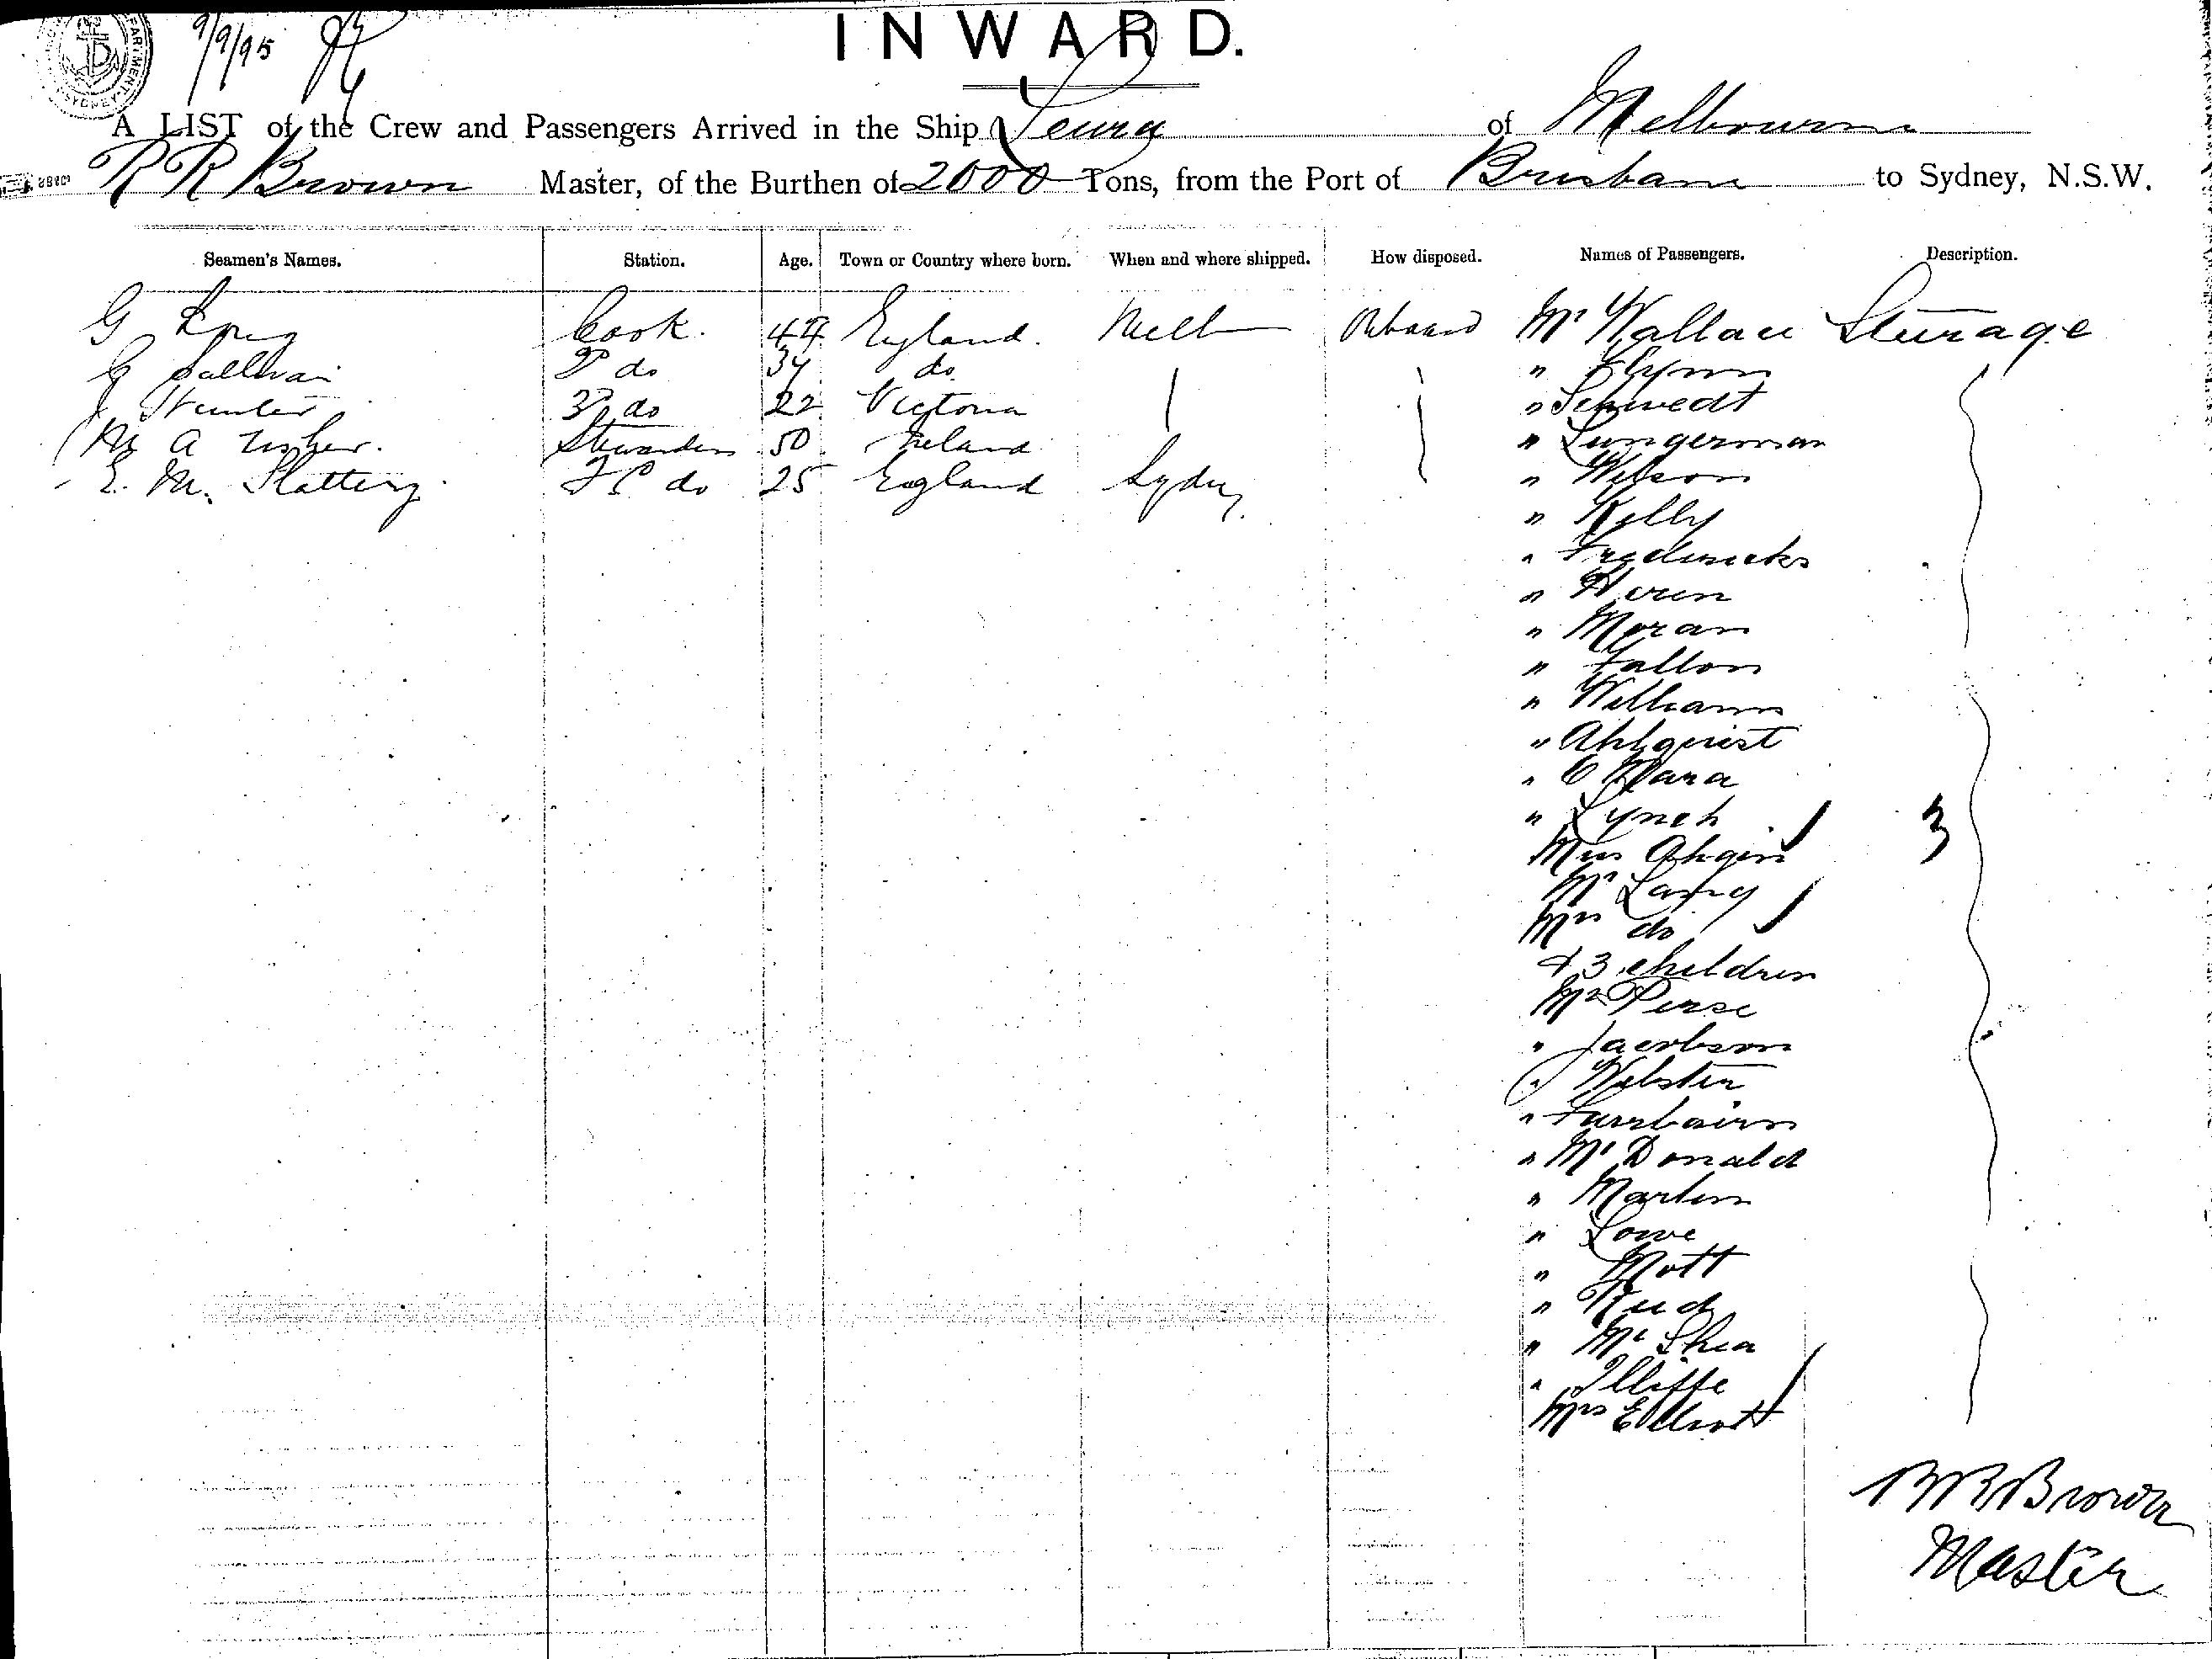 9/9/95
INWARD.
A LIST of the Crew and Passengers Arrived in the Ship Leura of Melbourne
R R Brown Master, of the Burthen of 2000 Tons, from the Port of Brisbane to Sydney, N.S.W.
Seamen's Names. Station. Age. Town or Country where born. When and where shipped. How disposed. Names of Passengers. Description.
G Cook. 44 England. Melb Onboard Mr Wallace Steerage
G Sullivan 2d do 34 do " Flynn
3d do 22 Victoria " Schwedt
A Usher. Stewardess 50 Ireland " Lungerman
E. M. Slattery. do 25 England Sydney " Wilson
" Kelly
" Fredericks
" Heren
" Moran
" Fallon
" Williams
" Ahlquist
" O'Hara
" Lynch
Miss
Mr Lang
Mrs do
& 3 children 3
Mr Perse
" Jacobson
" Webster
" Fairbairn
" McDonald
" Martin
" Lowe
" Mott
"
" McShea
" Illiffe
Mrs Elliott
R R Brown
Master